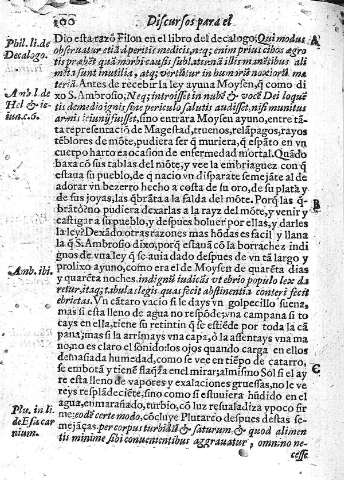 200
Discursos para el
Phil. li. de Decalogo.
Dio esta razō Filon en el libro del decalogo. Qui modus
obseruatur etiā à peritis medicis, neq; enim prius cibos ægro
tis præbēt quā morbi causis sublatis
alimēta sunt inutilia, atq; vertūtur in humorū noxiorū ma
teriā. Antes de recebir la ley ayuna Moysen, q̄ como di
Amb. l. de Hel & ie-iu. c. 6.
xo S. Ambrosio, Neq; introisset in nubē & vocē Dei loquē
tis de medio ignis sine periculo salutis audisset, nisi munitus
armis ieiunij fuisset, sino entrara Moysen ayuno, entre tā
ta representació de Magestad, truenos, relāpagos, rayos
tēblores de mōte, pudiera ser q̄ muriera, q̄ espāto en vn
cuerpo harto es ocasion de enfermedad mortal. Quādo
baxa cō sus tablas del mōte, y vee la embriaguez con q̄
estaua su pueblo, de q̄ nacio vn disparate semejāte al de
adorar vn bezerro hecho a costa de su oro, de su plata y
de sus joyas, las q̄brāta a la salda del mōte. Porq̄ las q̄-
B
brātò? no pudiera dexarlas a la rayz del mōte, y venir y
castigar a su pueblo, y despues boluer por ellas, y darles
la ley? Dexādo otras razones mas hōdas es facil y llana
la q̄ S. Ambrosio dixo, porq̄ estauā cō la borrachez indi
gnos de vna ley q̄ se auia dado despues de vn tā largo y
Amb. ibi.
prolixo ayuno, como era el de Moysen de quarēta dias
y quarēta noches. indignū iudicās vt ebrio populo lex da
retur, itaq; tabulā legis quas fecit abstinentia conteri fecit
ebrietas. Vn cātaro vacio si le days vn golpecillo suena,
mas si esta lleno de agua no respōde, vna campana si to
cays en ella, tiene su retintin q̄ se estiēde por toda la cā
pana; mas si la arrimays vna capa, ò la assentays vna ma
no, no es claro el sonido: los ojos quando carga en ellos
demasiada humedad, como se vee en tiēpo de catarro,
se embotā y tienē flaq̄za en el mirar; al mismo Sol si el ay
C
re esta lleno de vapores y exalaciones gruessas, no le ve
reys resplādeciēte, sino como si estuuiera hūdido en el
agua, enmarañado, turbio, cō luz resualadiza y poco fir
Plu. in li. de Esu car nium.
me; eodē certe modo, cōcluye Plutarco despues destas se-
mejāças, per corpus turbidū & saturum, & quod alimen
tis minime sibi conuenientibus aggrauatur, omnino ne
cesse